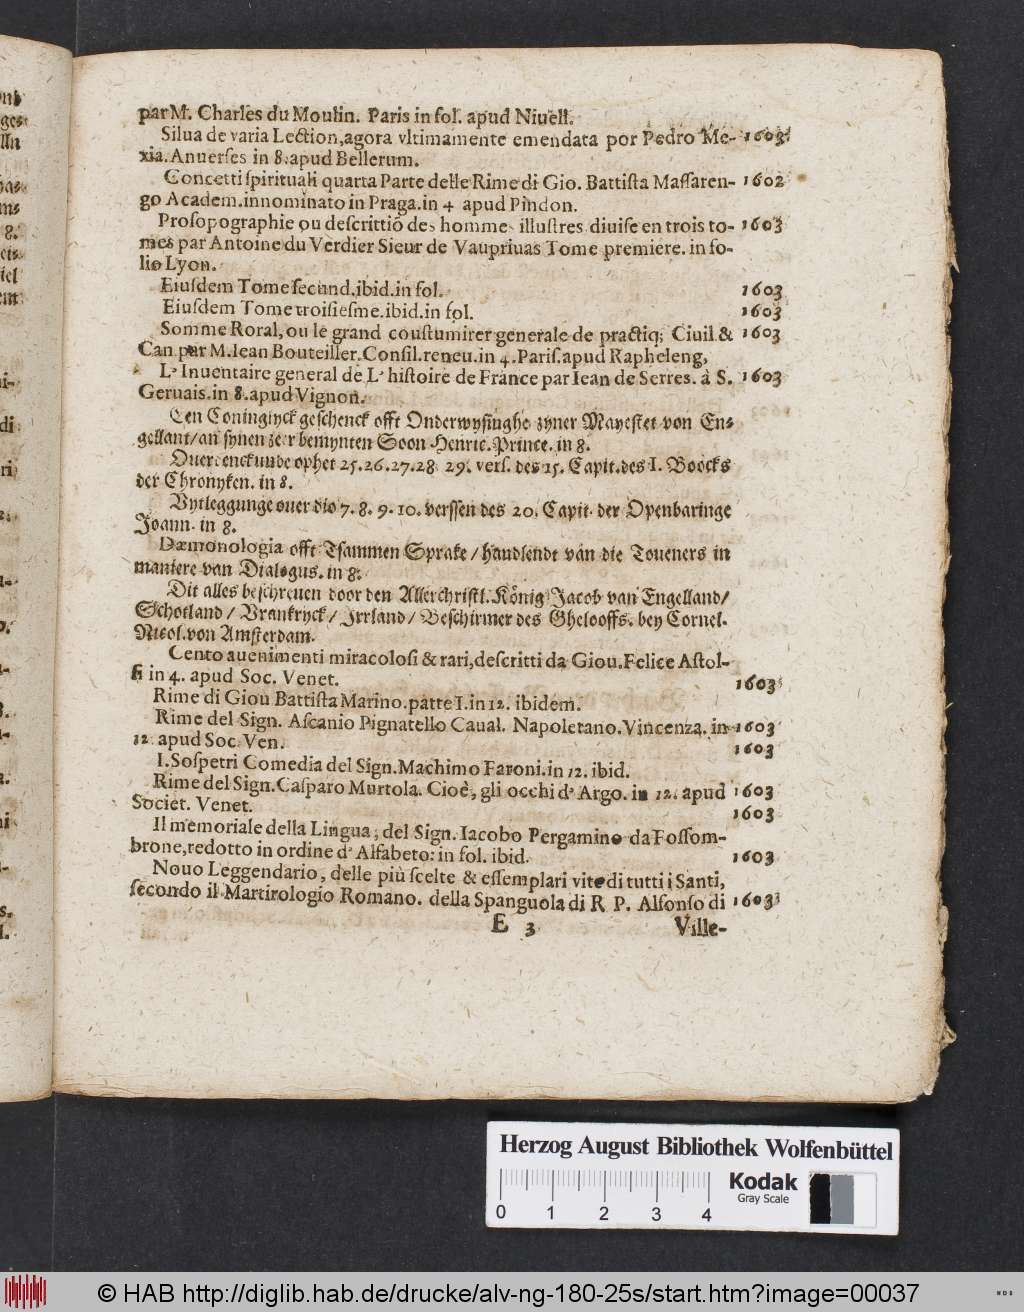 par M. Charles du Moulin. Paris in fol. apud Niuell.
Silua de varia Lection, agora vltimamente emendata por Pedro Me- 1603
xia. Anuerses in 8. apud Bellerum.
Concetti spirituali quarta Parte delle Rime di Gio. Battista Massaren- 1602
go Academ. innominato in Praga. in 4 apud Pindon.
Prosopographie ou descrittiō des homme illustres diuise en trois to- 1603
mes par Antoine du Verdier Sieur de Vaupriuas Tome premiere. in fo-
lio Lyon.
Eiusdem Tome secund. ibid. in fol. 1603
Eiusdem Tome troisiesme. ibid. in fol. 1603
Somme Roral, ou le grand coustumirer generale de practiq; Ciuil & 1603
Can par M. Iean Bouteiller. Consil. reneu. in 4. Paris. apud Rapheleng,
L' Inuentaire general de L' histoire de France par Iean de Serres. à S. 1603
Geruais. in 8. apud Vignon.
Een Coninginck geschenck offt Onderwysinghe zyner Mayestet von En-
gellant / an synen zeer bemynten Soon Henric. Prince. in 8.
Ouerdenckunde op het 25. 26. 27. 28 29. vers. des 15. Capit. des I. Boocks
der Chronyken. in 8.
Vytleggunge ouer dio 7. 8. 9. 10. verssen des 20. Capit. der Openbaringe
Joann. in 8.
Dæmonologia offt Tsammen Sprake / handlendt van die Toueners in
maniere van Dialogus. in 8.
Dit alles beschreuen door den Allerchristl. König Jacob van Engelland /
Schotland / Vrankryck / Jrrland / Beschirmer des Ghelooffs. bey Cornel.
Nicol. von Amsterdam.
Cento auenimenti miracolosi & rari, descritti da Giou. Felice Astol-
fi in 4. apud Soc. Venet. 1603
Rime di Giou Battista Marino. patte I. in 12. ibidem.
Rime del Sign. Ascanio Pignatello Caual. Napoletano. Vincenza. in 1603
12. apud Soc. Ven. 1603
I. Sospetri Comedia del Sign. Machimo Faroni. in 12. ibid.
Rime del Sign. Casparo Murtola. Cioè, gli occhi d' Argo. in 12. apud 1603
Societ. Venet. 1603
Il memoriale della Lingua, del Sign. Iacobo Pergamino da Fossom-
brone, redotto in ordine d' Alfabeto: in fol. ibid. 1603
Nouo Leggendario, delle più scelte & essemplari vite di tutti i Santi,
secondo il Martirologio Romano. della Spanguola di R P. Alfonso di 1603
E 3 Ville-
Herzog August Bibliothek Wolfenbüttel
0 1 2 3 4
Kodak
Gray Scale
© HAB http://diglib.hab.de/drucke/alv-ng-180-25s/start.htm?image=00037